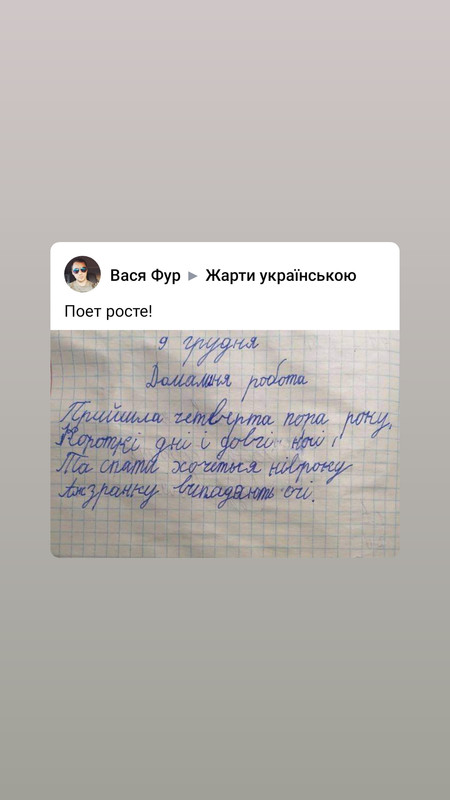 Вася Фур ▸ Жарти українською
Поет росте!
9 грудня
Домашня робота
Прийшла четверта пора року,
Короткі дні і довгі ночі,
Та спати хочеться нівроку
Аж зранку випадають очі.